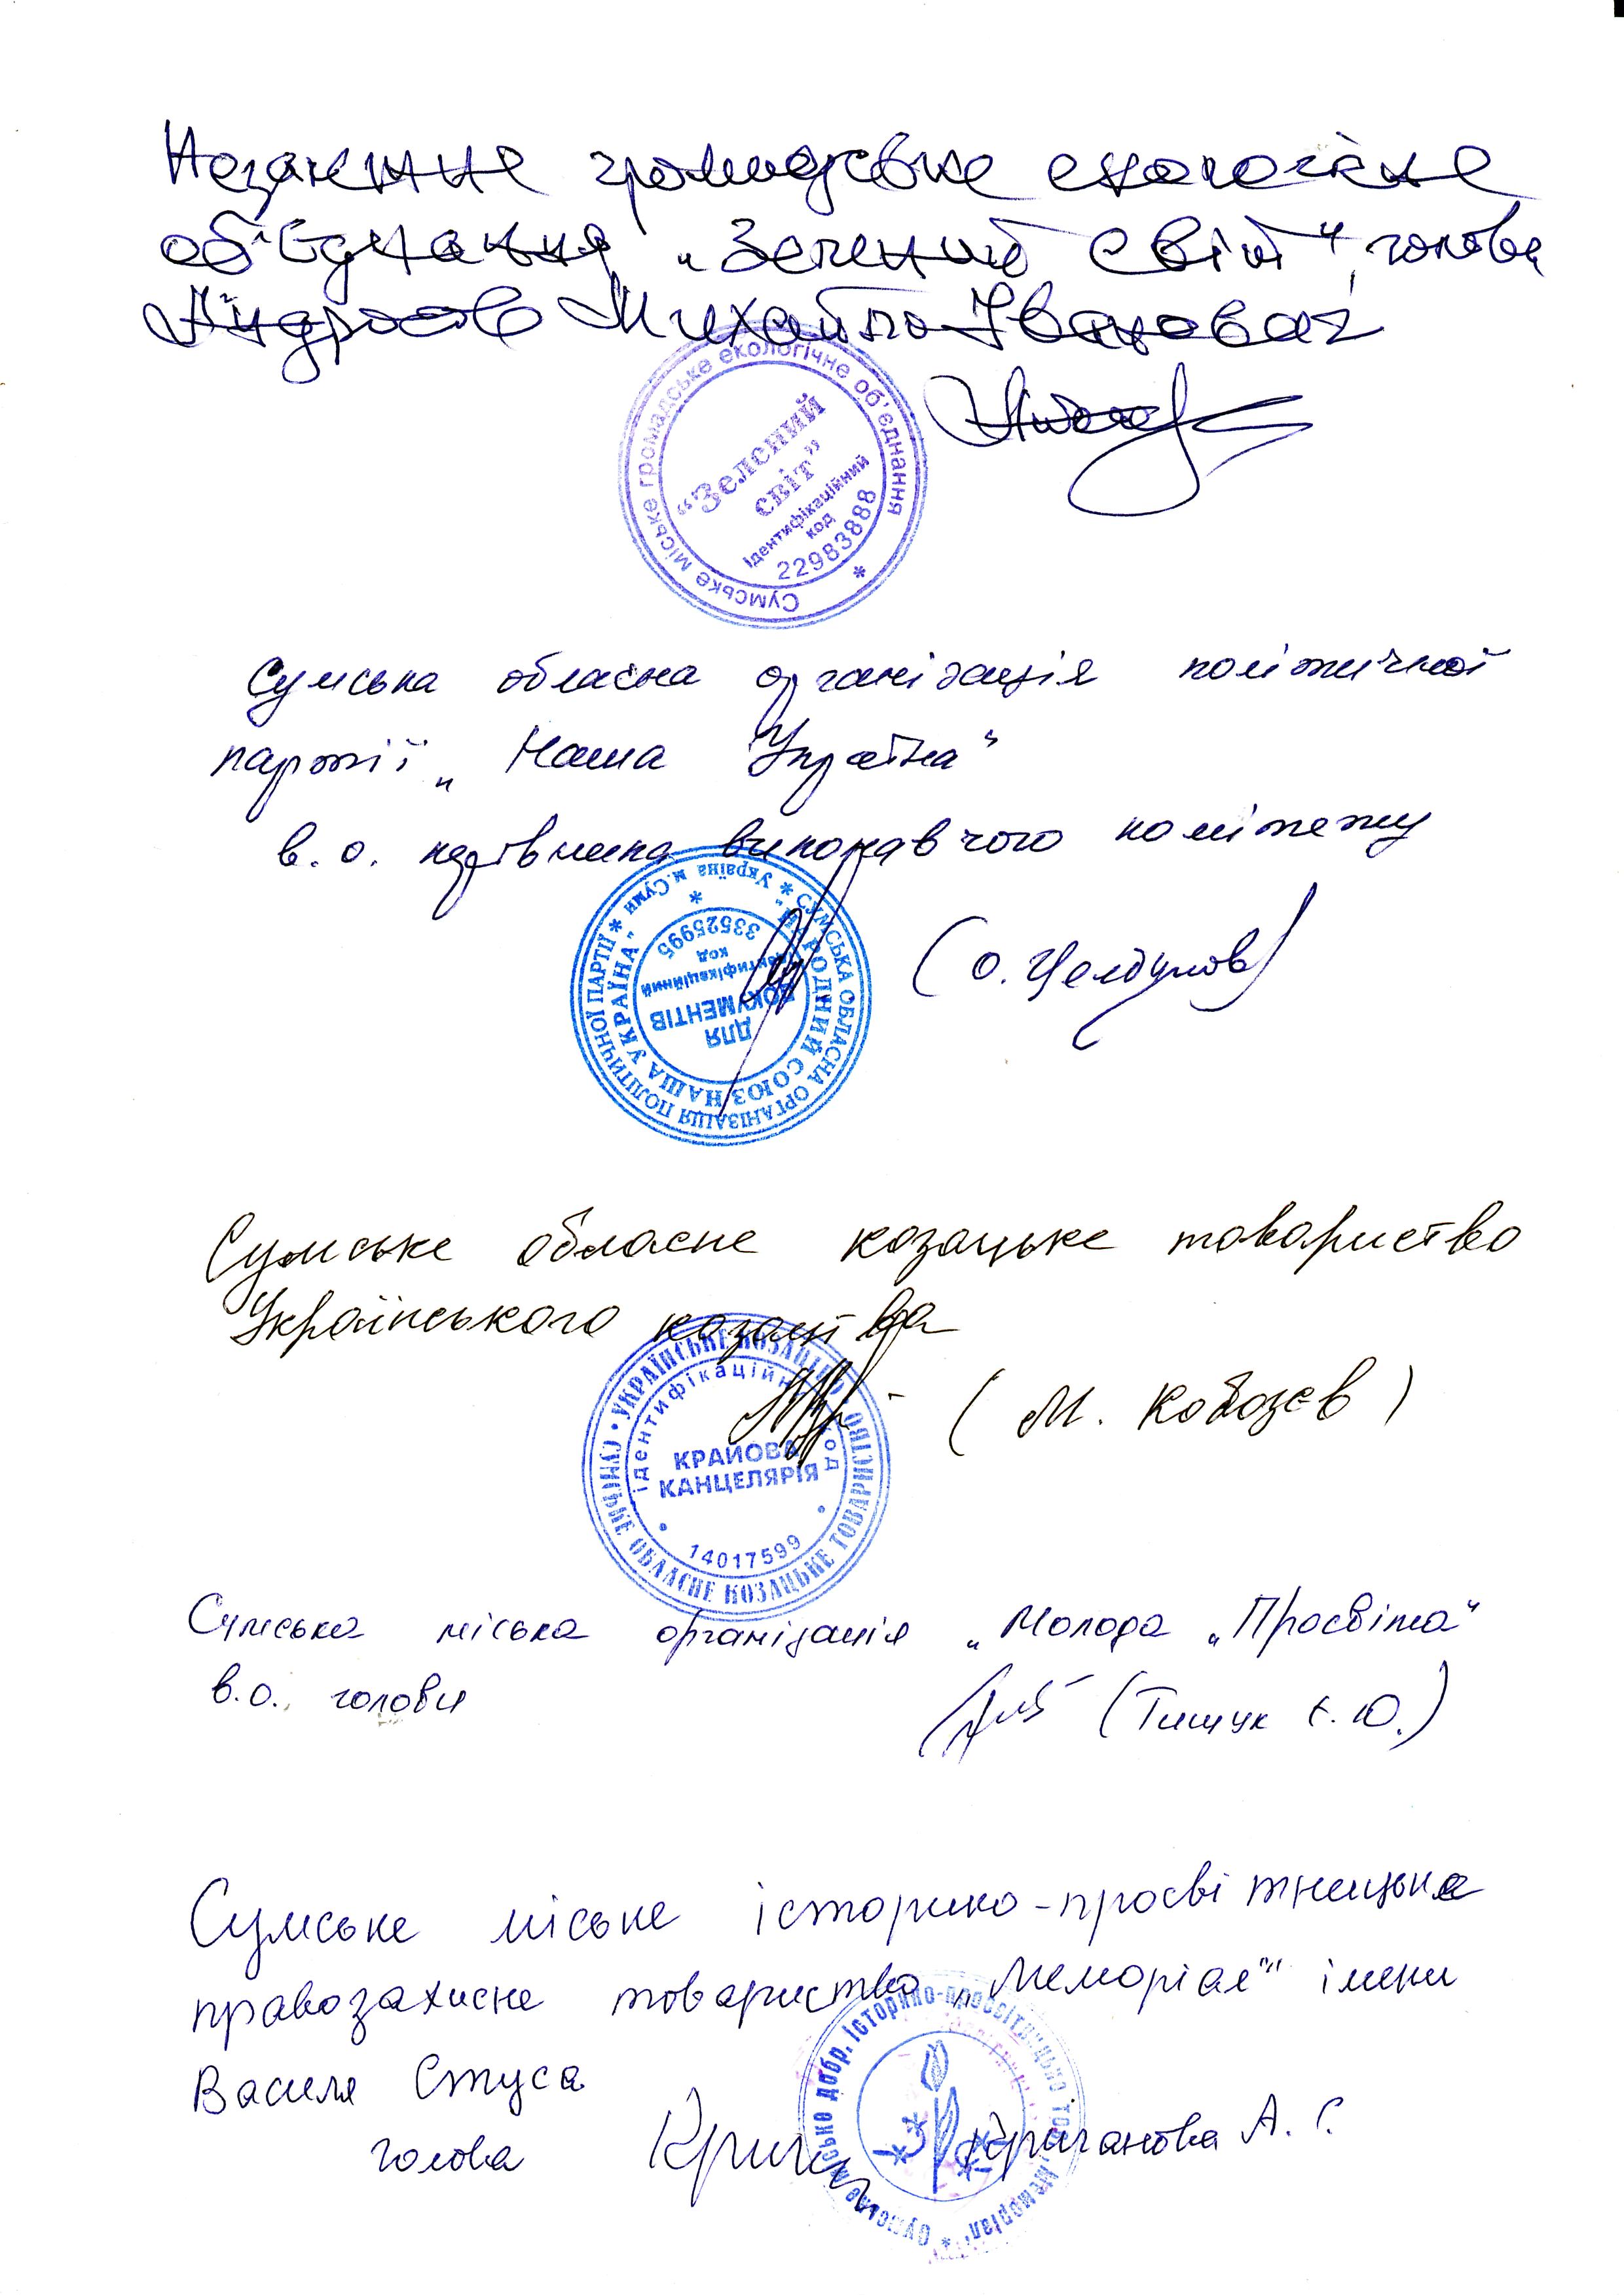 Незалежне громадське екологічне
об'єднання "Зелений світ", голова
Андросов Михайло Іванович
Сумське міське громадське екологічне об'єднання *
"Зелений
світ"
ідентифікаційний
код
22983888
Сумська обласна організація політичної
партії „ Наша Україна"
в.о. керівника виконавчого комітету
СУМСЬКА ОБЛАСНА ОРГАНІЗАЦІЯ ПОЛІТИЧНОЇ ПАРТІЇ * Україна м.Суми *
"НАРОДНИЙ СОЮЗ НАША УКРАЇНА"
ДЛЯ
ДОКУМЕНТІВ
ідентифікаційний
код
33525995
(О. )
Сумське обласне козацьке товариство
Українського козацтва
УКРАЇНСЬКЕ КОЗАЦТВО • СУМСЬКЕ ОБЛАСНЕ КОЗАЦЬКЕ ТОВАРИСТВО
ідентифікаційний код
КРАЙОВА
КАНЦЕЛЯРІЯ
14017599
( М. Кобозєв )
Сумська міська організація „Молода „Просвіта"
в.о. голови (Тищук Є. Ю.)
Сумське міське історико-просвітницьке
правозахисне товариство „Меморіал"" імені
Василя Стуса
голова Криганова А. Г.
Сумське місько добр. історико-просвітницьке тов. „Меморіал" *